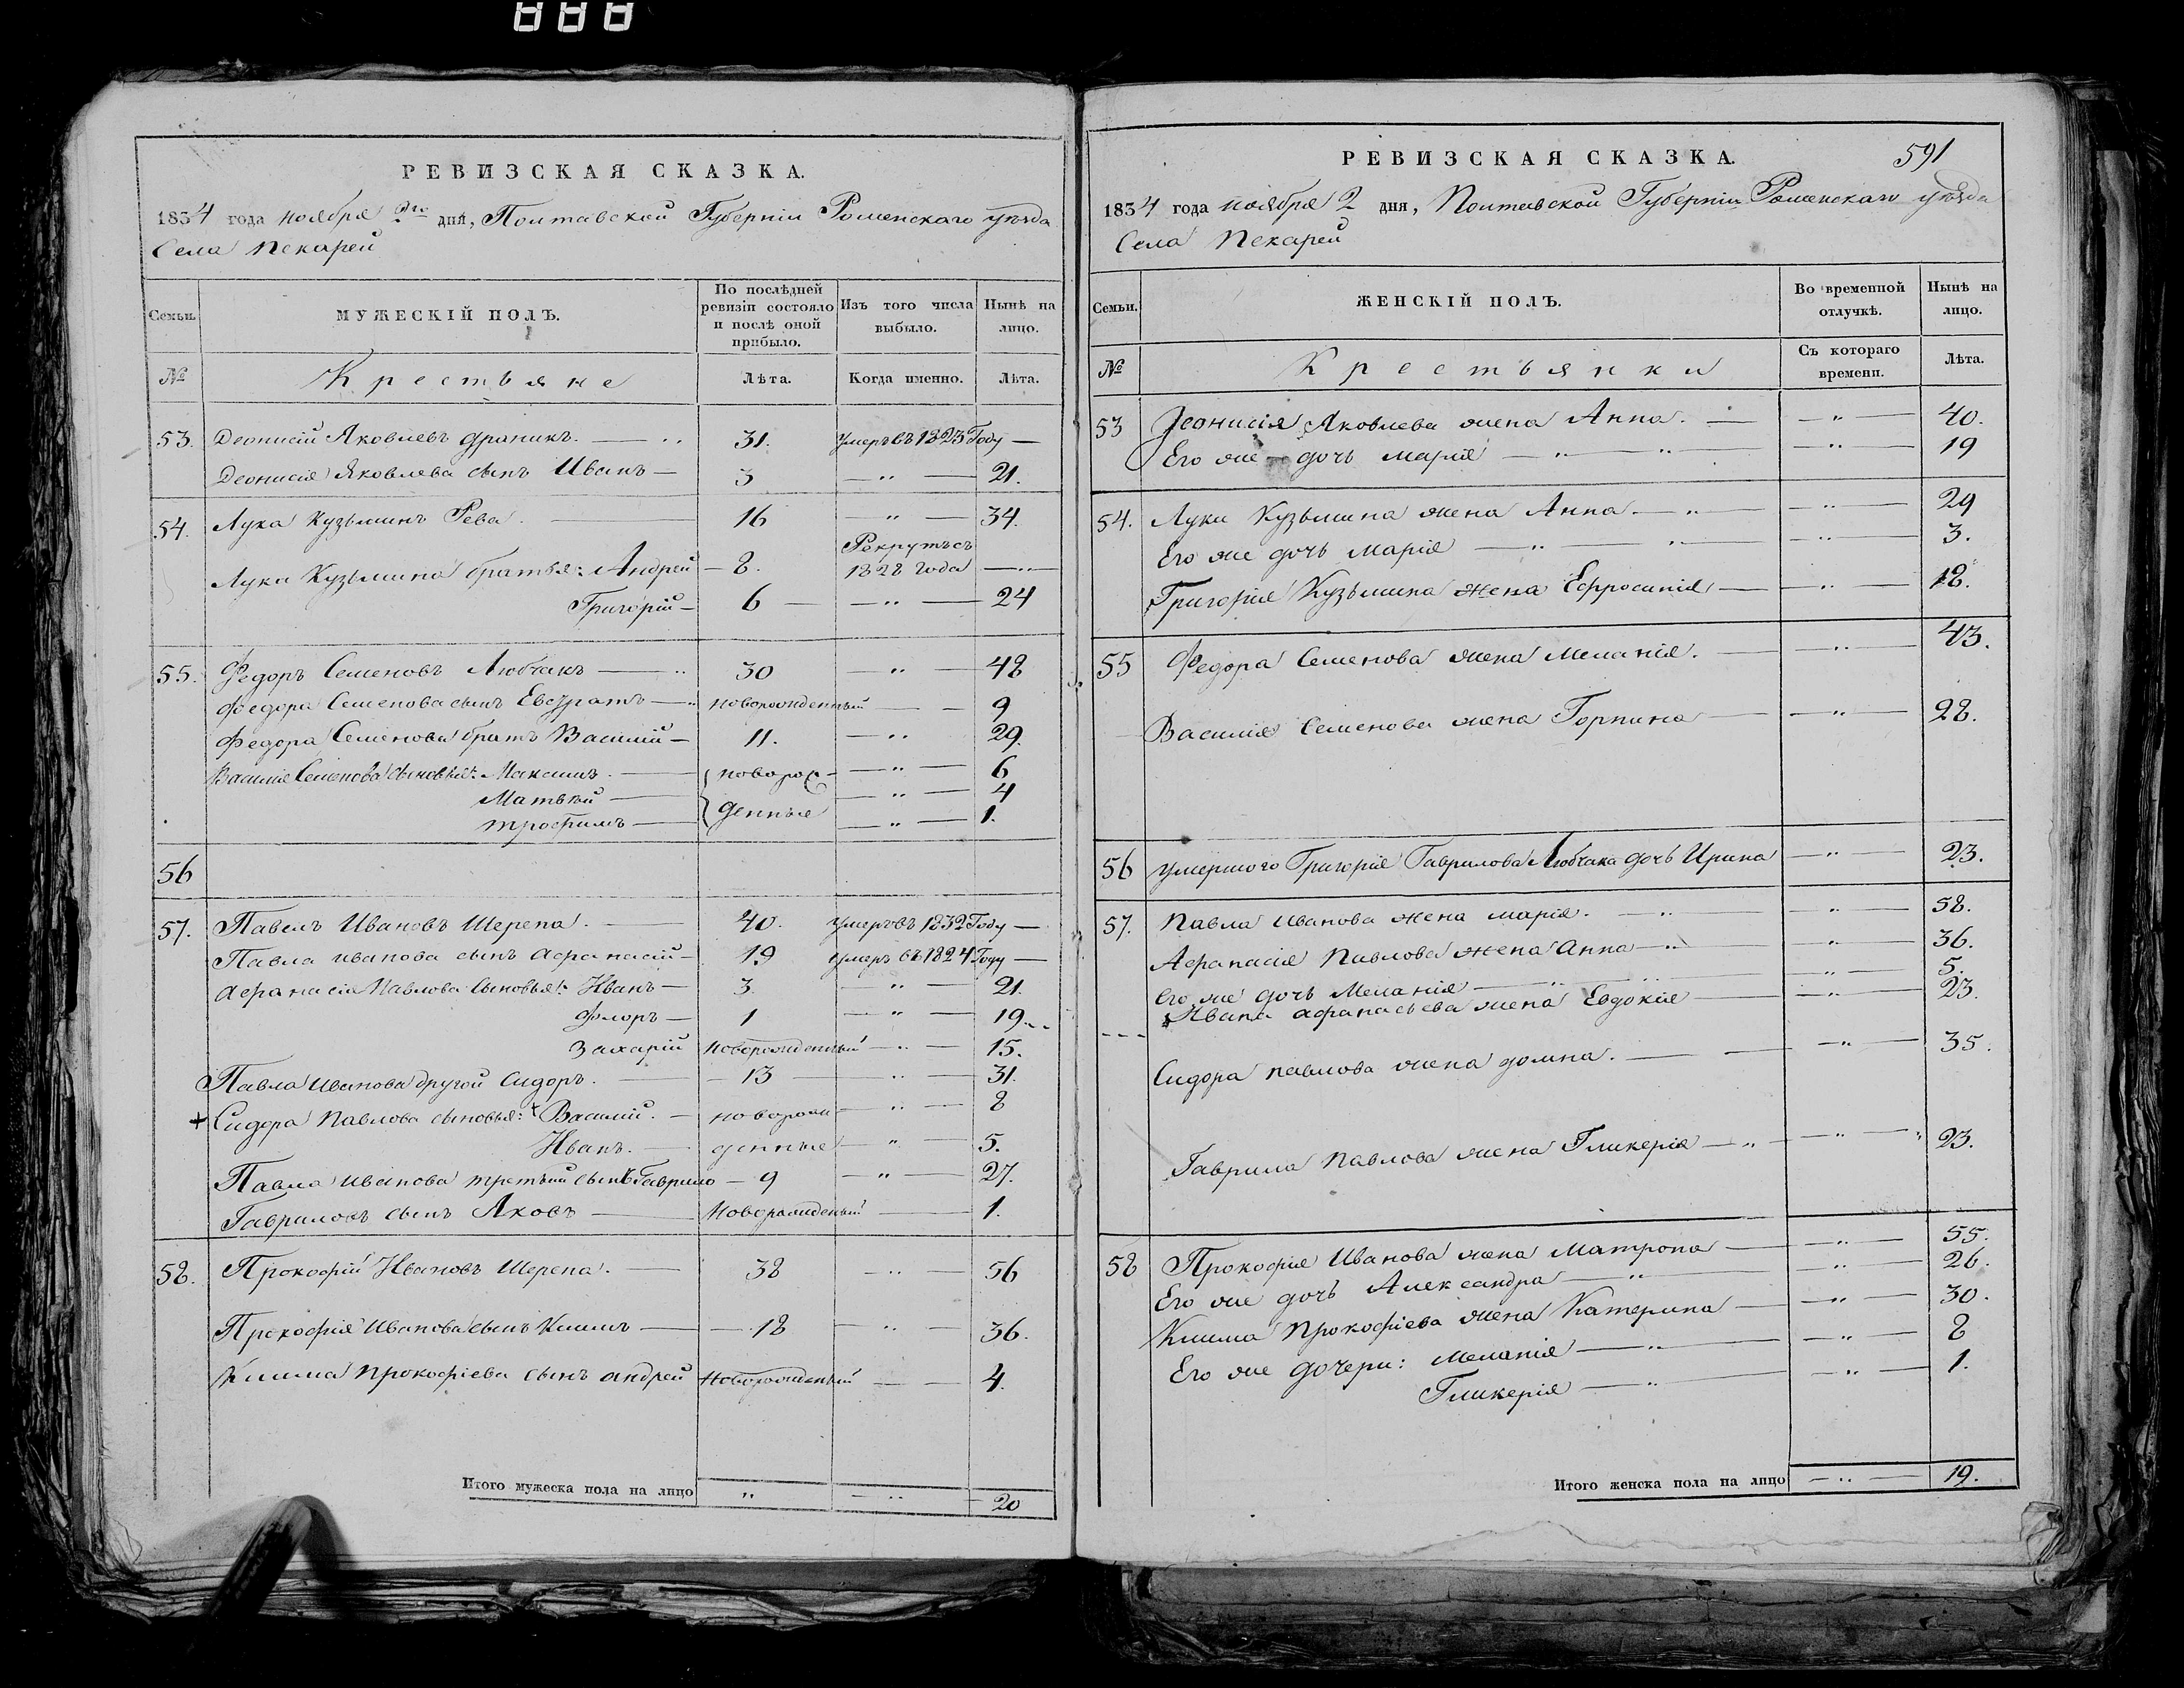 888
РЕВИЗСКАЯ СКАЗКА.
1834 года ноября 2го дня, Полтавской Губерніи Роменскаго уѣзда
Села Пекарей
Семьи.
МУЖЕСКІЙ ПОЛЪ.
По послѣдней ревизіи состояло и послѣ оной прибыло.
Изъ того числа выбыло.
Нынѣ на лицо.
№
Крестьяне
Лѣта.
Когда именно.
Лѣта.
53. Деонисій Яковлевъ Драникъ. — 31. умеръ въ 1823 Году —
Деонисія Яковлева сынъ Иванъ — 3 — " — 21.
54. Лука Кузьминъ Рева. — 16 — " — 34.
Луки Кузьмина братья: Андрей — 8. Рекрутъ съ 1828 года — " —
Григорій — 6 — " — 24
55. Федоръ Семеновъ Любчакъ — 30 — " — 48
Федора Семенова сынъ Евстратъ — новорожденный — 9
Федора Семенова братъ Василій — 11. — " — 29.
Василія Семенова сыновья: Максимъ. — новорож- — " — 6
Матвѣй — денные — " — 4
Трофимъ — " — 1.
56
57. Павелъ Ивановъ Шерепа. — 40. умеръ въ 1832 Году —
Павла Иванова сынъ Афанасій — 19 умеръ въ 1824 Году —
Афанасія Павлова сыновья: Иванъ — 3. — " — 21.
Флоръ — 1 — " — 19.
Захарій новорожденный — " — 15.
Павла Иванова другой Сидоръ. — 13 — " — 31.
+ Сидора Павлова сыновья: + Василій. — новорож — " — 8
Иванъ. — денные — " — 5.
Павла Иванова третьий сынъ Гаврило — 9 — " — 27.
Гавриловъ сынъ Яковъ — Новорожденый — 1.
58. Прокофій Ивановъ Шерепа. — 38 — " — 56
Прокофія Иванова сынъ Климъ — 18 — " — 36.
Клима Прокофіева сынъ Андрей Новорожденый — 4.
Итого мужеска пола на лицо " — " — 20
591
РЕВИЗСКАЯ СКАЗКА.
1834 года ноября 2 дня, Полтавской Губерніи Роменскаго уѣзда
Села Пекарей
Семьи.
ЖЕНСКІЙ ПОЛЪ.
Во временной отлучкѣ.
Нынѣ на лицо.
№
Крестьянки
Съ котораго времени.
Лѣта.
53 Деонисія Яковлева жена Анна. — " — 40.
Его же дочь Марія — " — 19
54. Луки Кузьмина жена Анна — " — 29
Его же дочь Марія — " — 3.
Григорія Кузьмина жена Ефросинія — " — 18.
55 Федора Семенова жена Меланія. — " — 43.
Василія Семенова жена Горпина — " — 28.
56 умершого Григорія Гаврилова Любчака дочь Ирина — " — 23.
57. Павла Иванова жена Марія. — " — 58.
Афанасія Павлова жена Анна — " — 36.
Его же дочь Меланія — " — 5.
Ивана Афанасьева жена Евдокія — " — 23.
Сидора Павлова жена Домна. — " — 35.
Гаврила Павлова жена Гликерія — " — 23.
58 Прокофія Иванова жена Матрона — " — 55.
Его же дочь Александра — " — 26.
Клима Прокофіева жена Катерина — " — 30.
Его же дочери: Меланія — " — 8
Гликерія — " — 1.
Итого женска пола на лицо — " — 19.